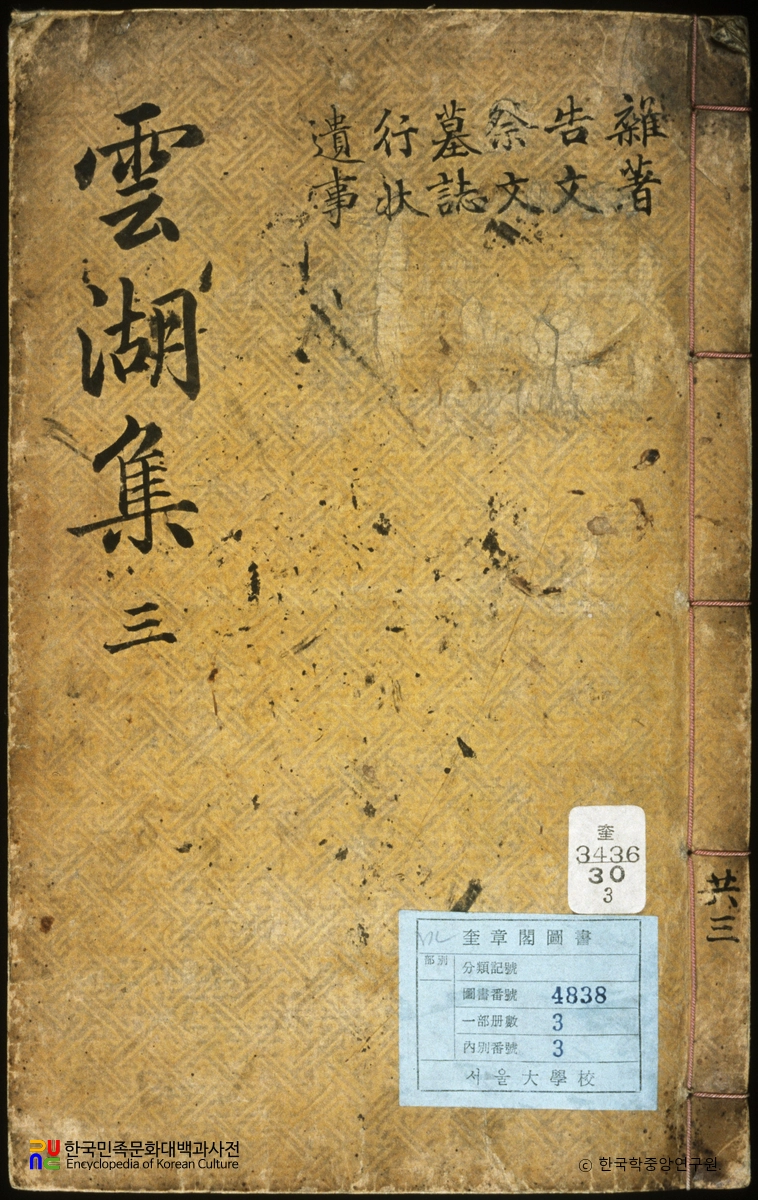 雜著
告文
祭文
墓誌
行状
遺事
雲湖集 三
共三
奎
3436
30
3
奎章閣圖書
部別
分類記號
圖書番號 4838
一部册數 3
內別番號 3
서울大學校
한국민족문화대백과사전
Encyclopedia of Korean Culture
© 한국학중앙연구원